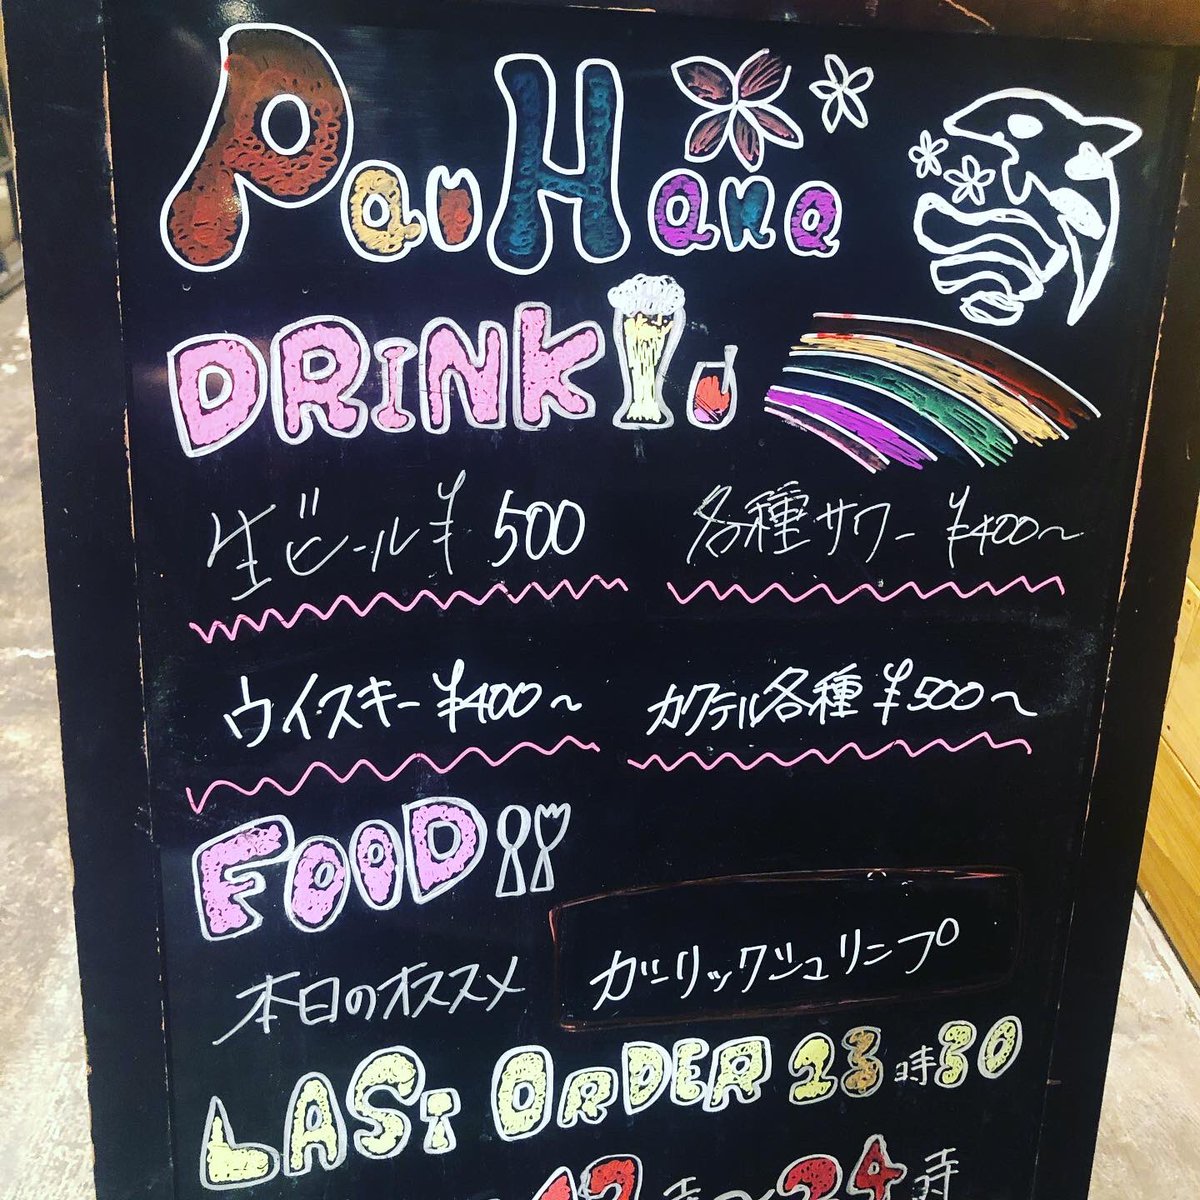 Pau Hana
DRINK
生ビール ¥500
各種サワー ¥400〜
ウイスキー ¥400〜
カクテル各種 ¥500〜
FOOD
本日のオススメ
ガーリックシュリンプ
LAST ORDER 23時30
〜24時